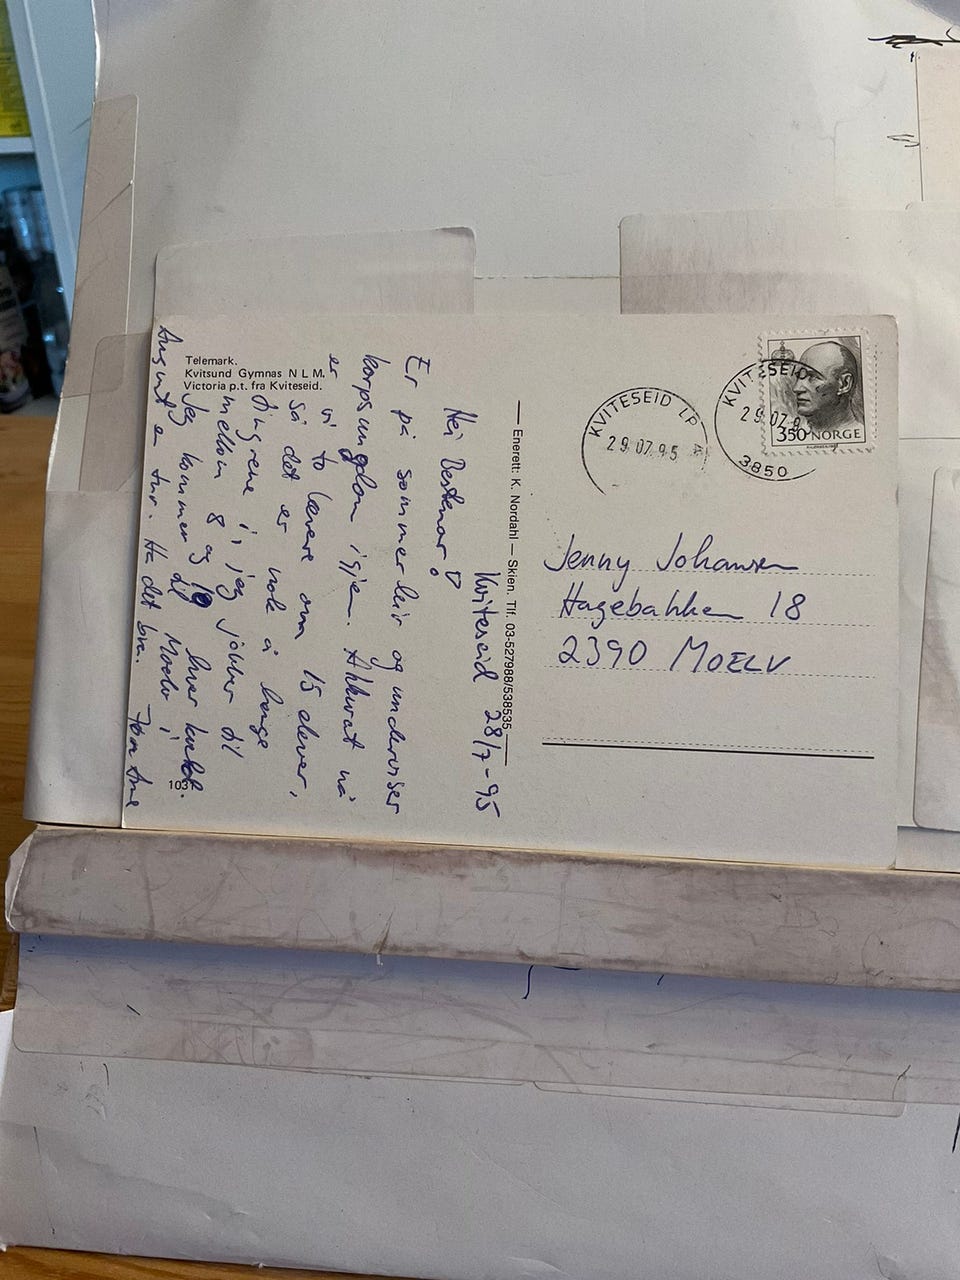 Telemark.
Kvitsund Gymnas N L M.
Victoria p.t. fra Kviteseid.
Kviteseid 28/7-95
Hei Bestemor!
Er på sommerleir og underviser
korpsungdom igjen. Akkurat nå
er vi to lærere om 15 elever,
så det er nok å henge
fingrene i, jeg jobber fra
mellom 8 og 10 hver kveld.
Jeg kommer til Moelv i
August en tur. Ha det bra.
103
— Enerett: K. Nordahl — Skien. Tlf. 03-527988/538535 —
KVITESEID LP
29.07.95
KVITESEID
29.07.9
3850
350 NORGE
Jenny Johansen
Hagebakken 18
2390 MOELV